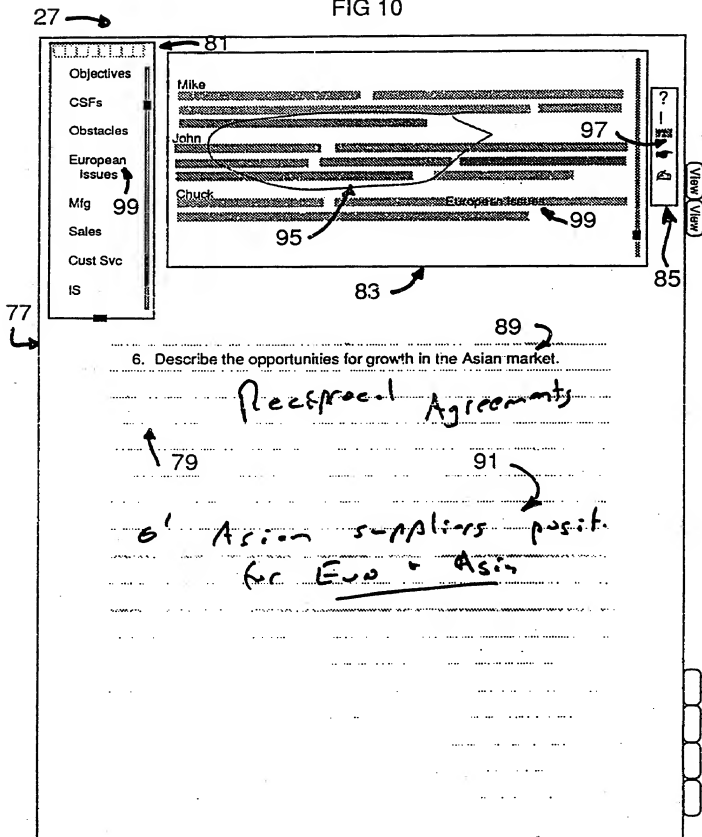 FIG 10
27
81
Objectives
CSFs
Obstacles
European
Issues
99
Mfg
Sales
Cust Svc
IS
Mike
John
Chuck
European Issues
99
95
83
?
!
97
85
(View)
(View)
77
89
6. Describe the opportunities for growth in the Asian market.
Reciprocal Agreements
79
91
Asian suppliers posit.
for Euro + Asia